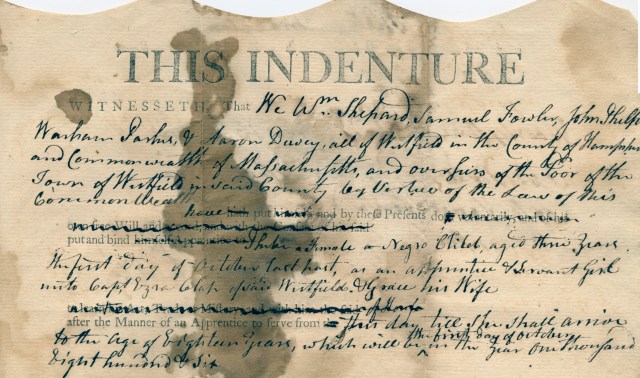 THIS INDENTURE
WITNESSETH, That We Wm. Shepard, Samuel Fowler, John Phelps
Warham Parks, & Aaron Dewey, all of Westfield in the County of Hampshire
and Commonwealth of Massachusetts, and overseers of the Poor of the
Town of Westfield in said County by Vertue of the Law of this
Commonwealth
have hath put and by these Presents
put and bind himself a Female a Negro Child, aged three Years
the first day of October last past, as an apprentice & Servant Girl
unto Capt. Ezra Clap of said Westfield & Grace his Wife
after the Manner of an Apprentice to serve from this day till She shall arrive
to the age of Eighteen Years, which will be the first day of October in the Year One thousand
Eight hundred & Six